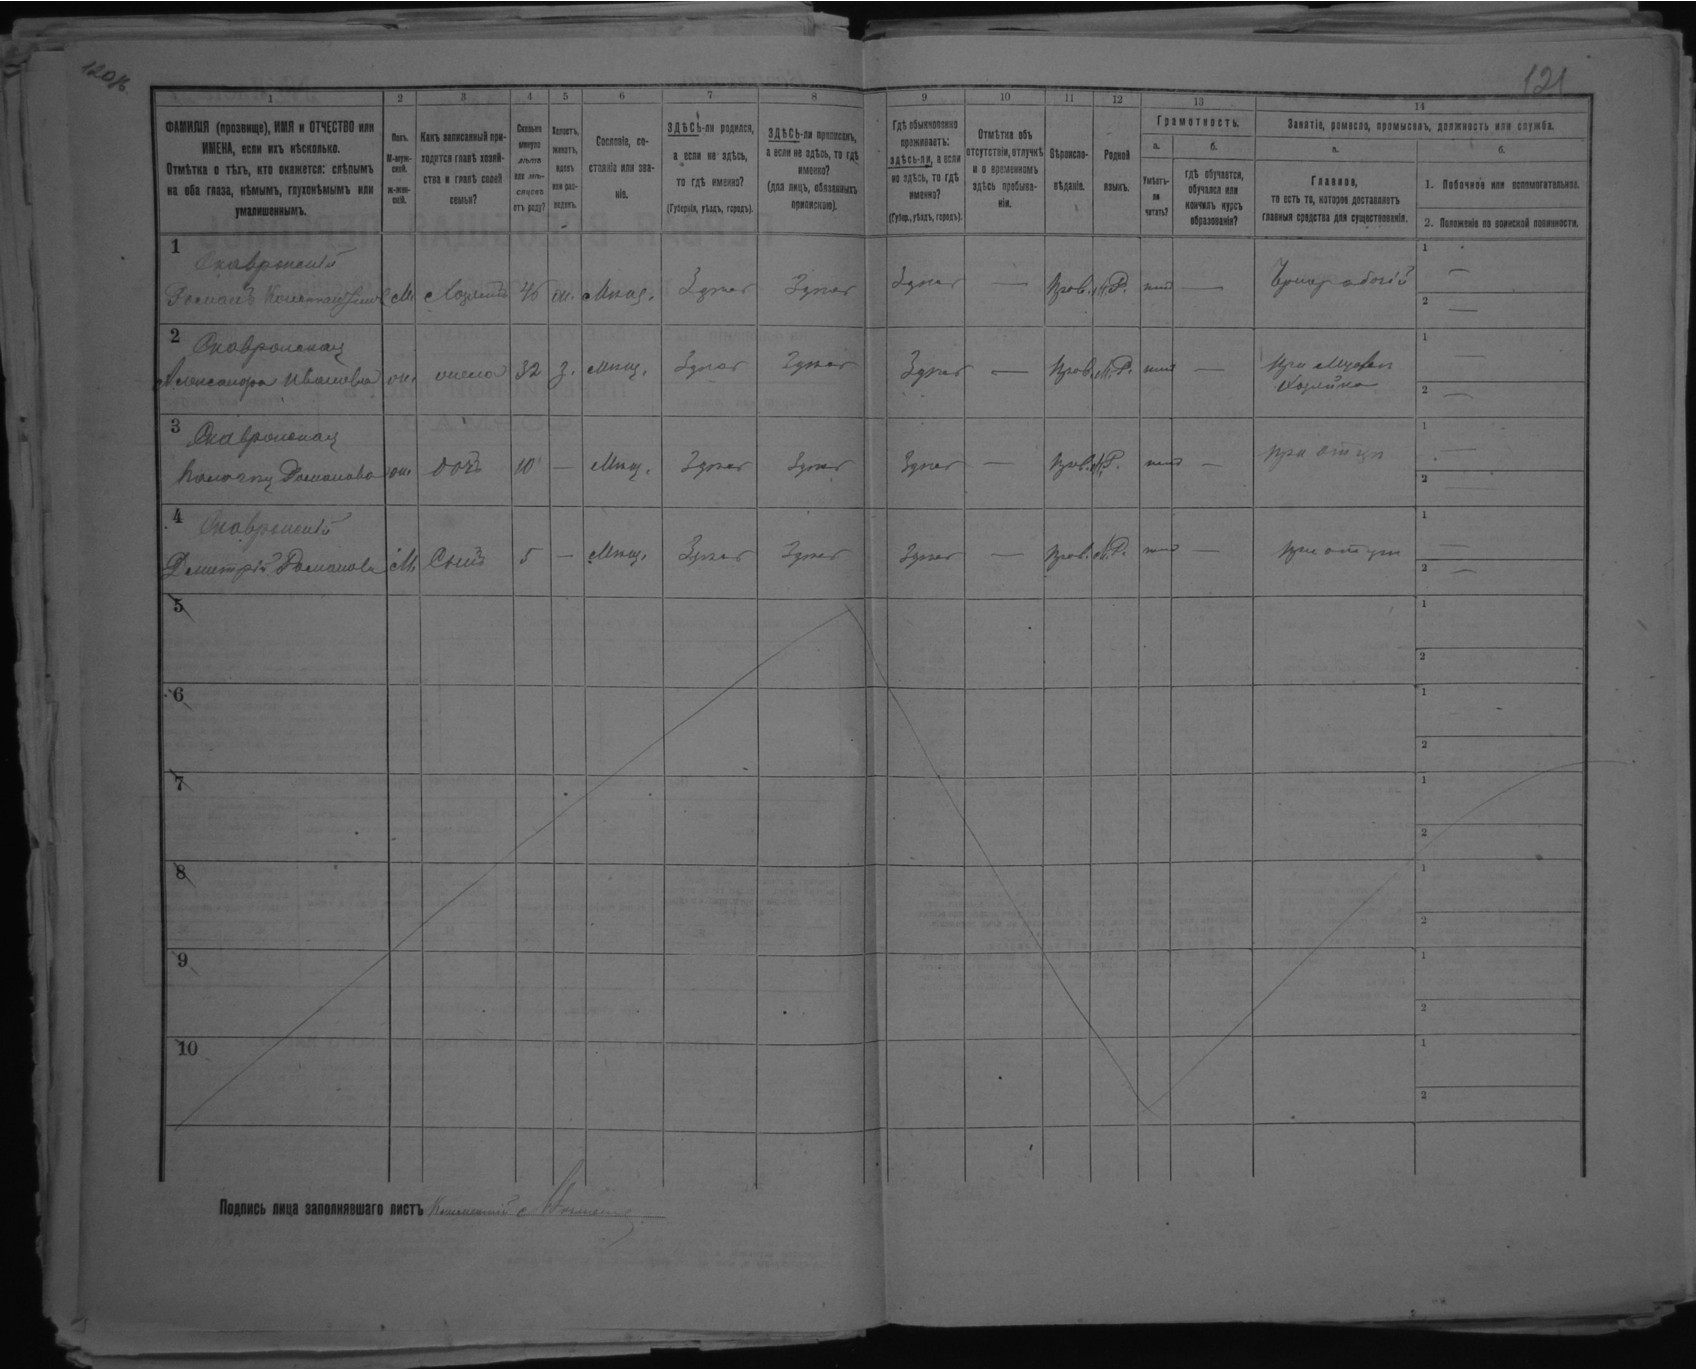 120 об.
121
1 2 3 4 5 6 7 8 9 10 11 12 13 14
ФАМИЛІЯ (прозвище), ИМЯ и ОТЧЕСТВО или
ИМЕНА, если ихъ нѣсколько.
Отмѣтка о тѣхъ, кто окажется: слѣпымъ
на оба глаза, нѣмымъ, глухонѣмымъ или
умалишеннымъ.
Полъ.
М-муж-
ской.
ж-жен-
скій.
Какъ записанный при-
ходится главѣ хозяй-
ства и главѣ своей
семьи?
Сколько
минуло
лѣтъ
или мѣ-
сяцевъ
отъ роду?
Холостъ,
женатъ,
вдовъ
или раз-
веденъ.
Сословіе, со-
стояніе или зва-
ніе.
ЗДѢСЬ-ли родился,
а если не здѣсь,
то гдѣ именно?
(Губернія, уѣздъ, городъ).
ЗДѢСЬ-ли приписанъ,
а если не здѣсь, то гдѣ
именно?
(для лицъ, обязанныхъ
припискою).
Гдѣ обыкновенно
проживаетъ:
здѣсь-ли, а если
не здѣсь, то гдѣ
именно?
(Губер., уѣздъ, городъ).
Отмѣтка объ
отсутствіи, отлучкѣ
и о временномъ
здѣсь пребыва-
ніи.
Вѣроиспо-
вѣданіе.
Родной
языкъ.
Грамотность.
а.
Умѣетъ-
ли
читать?
б.
гдѣ обучается,
обучался или
кончилъ курсъ
образованія?
Занятіе, ремесло, промыселъ, должность или служба.
а.
Главное,
то есть то, которое доставляетъ
главныя средства для существованія.
б.
1. Побочное или вспомогательное.
2. Положеніе по воинской повинности.
1
Скавронскій
Романъ М. Хозяинъ Мѣщ. Здѣсь Здѣсь Здѣсь — Прав. М.Р. нѣтъ — Чернорабочій
1 —
2 —
2
Скавронская
Александра Ивановна ж. жена 32 з. Мѣщ. Здѣсь Здѣсь Здѣсь — Прав. М.Р. нѣтъ — при мужѣ
хозяйка
1 —
2 —
3
Скавронская
Романова ж. дочь 10 — Мѣщ. Здѣсь Здѣсь Здѣсь — Прав. М.Р. нѣтъ — при отцѣ
1 —
2 —
4
Скавронскій
Дмитрій Романовъ М. Сынъ 5 — Мѣщ. Здѣсь Здѣсь Здѣсь — Прав. М.Р. нѣтъ — при отцѣ
1 —
2 —
5
1
2
6
1
2
7
1
2
8
1
2
9
1
2
10
1
2
Подпись лица заполнявшаго листъ